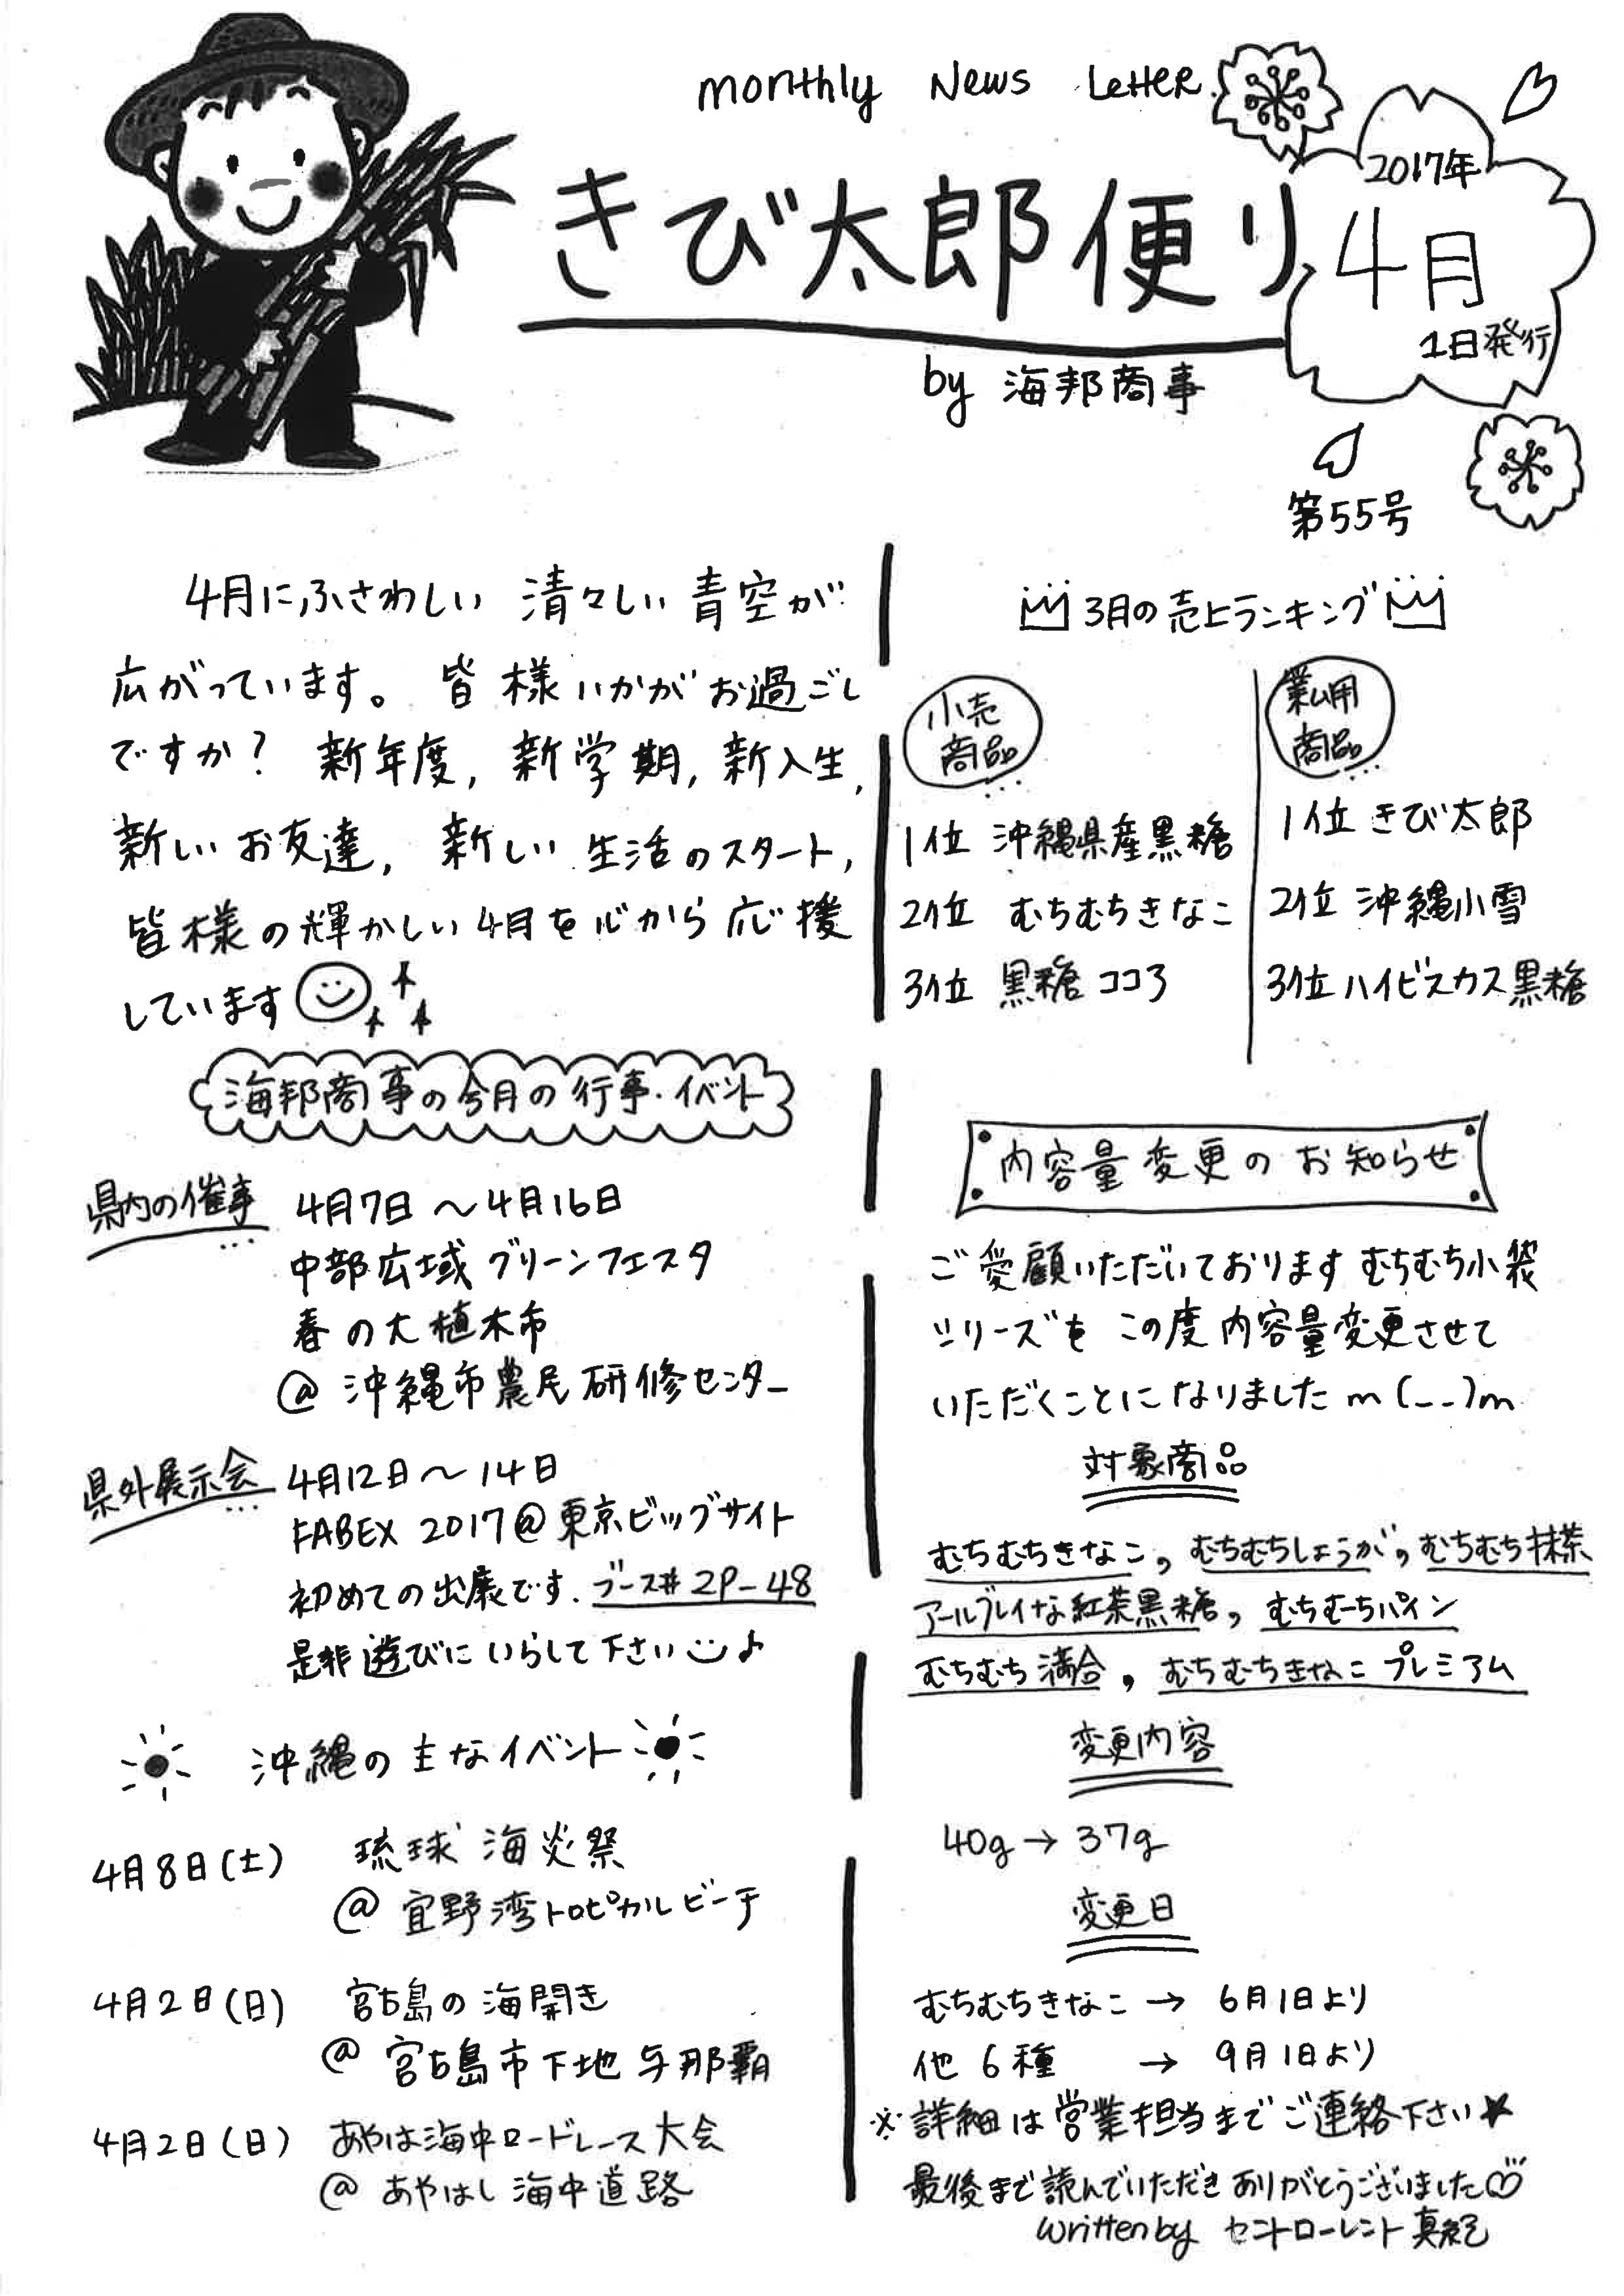 monthly News Letter
きび太郎便り
2017年
4月
1日発行
by 海邦商事
第55号
4月にふさわしい 清々しい 青空が
広がっています。 皆様いかがお過ごし
ですか? 新年度, 新学期, 新入生,
新しいお友達, 新しい 生活のスタート,
皆様の輝かしい4月を心から応援
しています
海邦商事の今月の行事・イベント
県内の催事
4月7日 〜 4月16日
中部広域 グリーンフェスタ
春の大植木市
@ 沖縄市農民研修センター
県外展示会
4月12日 〜 14日
FABEX 2017@東京ビッグサイト
初めての出展です. ブース# 2P-48
是非遊びにいらして下さい
沖縄の主なイベント
4月8日(土) 琉球海炎祭
@ 宜野湾トロピカルビーチ
4月2日(日) 宮古島の海開き
@ 宮古島市下地与那覇
4月2日(日) あやはし海中ロードレース大会
@ あやはし海中道路
3月の売上ランキング
小売
商品
1位 沖縄県産黒糖
2位 むちむちきなこ
3位 黒糖ココア
業ム用
商品
1位 きび太郎
2位 沖縄小雪
3位 ハイビスカス黒糖
内容量変更のお知らせ
ご愛顧いただいております むちむち小袋
シリーズを この度内容量変更させて
いただくことになりました m(_ _)m
対象商品
むちむちきなこ, むちむちしょうが, むちむち抹茶
アールグレイな紅茶黒糖, むちむちパイン
むちむち満合, むちむちきなこ プレミアム
変更内容
40g → 37g
変更日
むちむちきなこ → 6月1日より
他6種 → 9月1日より
※詳細は営業担当までご連絡下さい★
最後まで読んでいただきありがとうございました♡
written by セントローレント 真紀